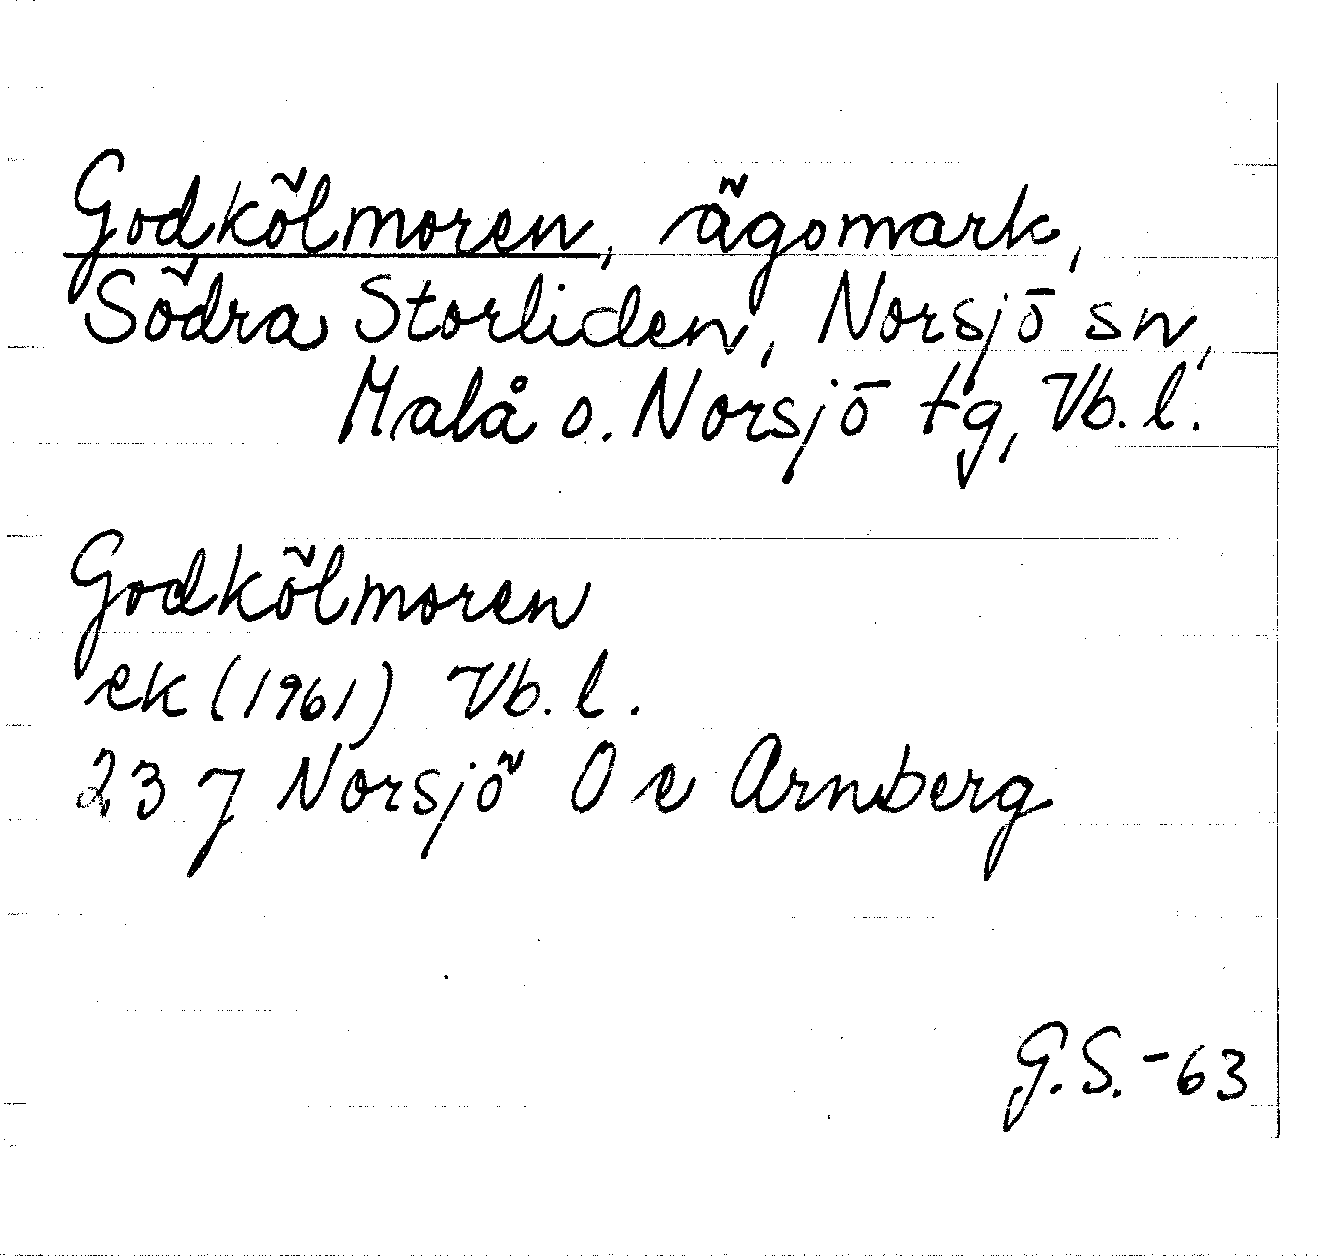 Godkölmoren, ägomark,
Södra Storliden, Norsjö sn,
Malå o. Norsjö tg, Vb. l.
Godkölmoren
ek (1961) Vb. l.
23 J Norsjö O e Arnberg
G.S.-63